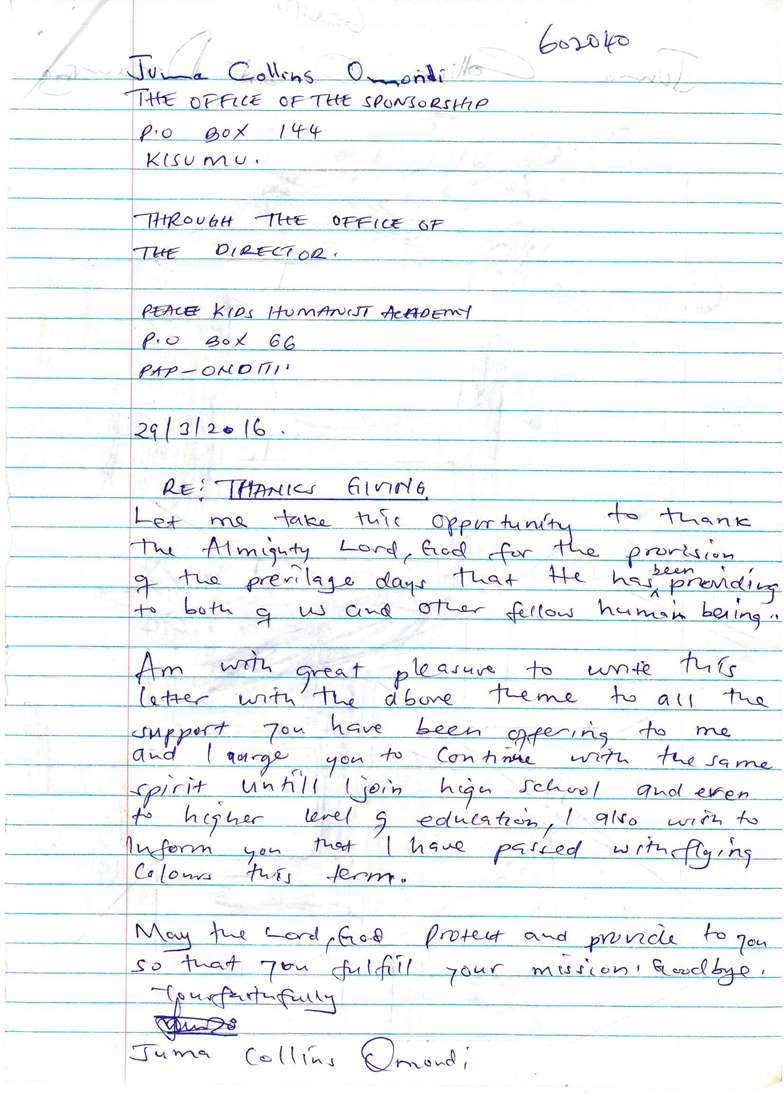 602040
Juma Collins Omondi
THE OFFICE OF THE SPONSORSHIP
P.O BOX 144
KISUMU.
THROUGH THE OFFICE OF
THE DIRECTOR.
PEACE KIDS HUMANIST ACADEMY
P.O BOX 66
PAP-ONDITI
29/3/2016.
RE: THANKS GIVING
Let me take this opportunity to thank
the Almighty Lord, God for the provision
of the prerilage days that He has been providing
to both of us and other fellow human being..
Am with great pleasure to write this
letter with the above theme to all the
support you have been offering to me
and I aurge you to continue with the same
spirit untill I join high school and even
to higher level of education, I also wish to
inform you that I have passed with flying
colours this term.
May the Lord, God protect and provide to you
so that you fulfill your mission. Goodbye.
Yoursfaithfully
Juma Collins Omondi